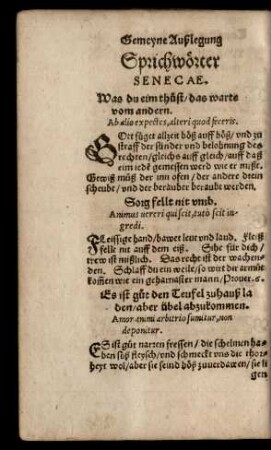 Gemeyne Außlegung
Sprichwörter
SENECAE.
Was du eim thůst/das warte
vom andern.
Ab alio expectes, alteri quod feceris.
GOtt füget allzeit böß auff böß/ und zu
straff der sünder und belohnung des
rechten/gleichs auff gleich/auff daß
eim iedẽ gemessen werd wie er mißt.
Gewiß můß der inn ofen / der andere drein
scheubt/und der berauber beraubt werden.
Sorg fellt nit vmb.
Animus uereri qui scit, tuto scit in-
gredi.
FLeissige hand/bawet leut vnd land. Fleiß
fellt nit auff dem eiß. Sihe für dich/
trew ist mißlich. Das recht ist der wachen-
den. Schlaff ein weile/so wirt der armůt
kommen wie ein geharnaster mann/Prouer. c.
Es ist gůt den Teufel zuhauß la
den/aber übel abzukommen.
Amor animi arbitrio sumitur, non
deponitur.
ES ist gůt narren fressen / die schelmen ha-
ben süß fleysch/und schmeckt vns die thor-
heyt wol/aber sie seind böß zuuerdawen/ sie li
gen